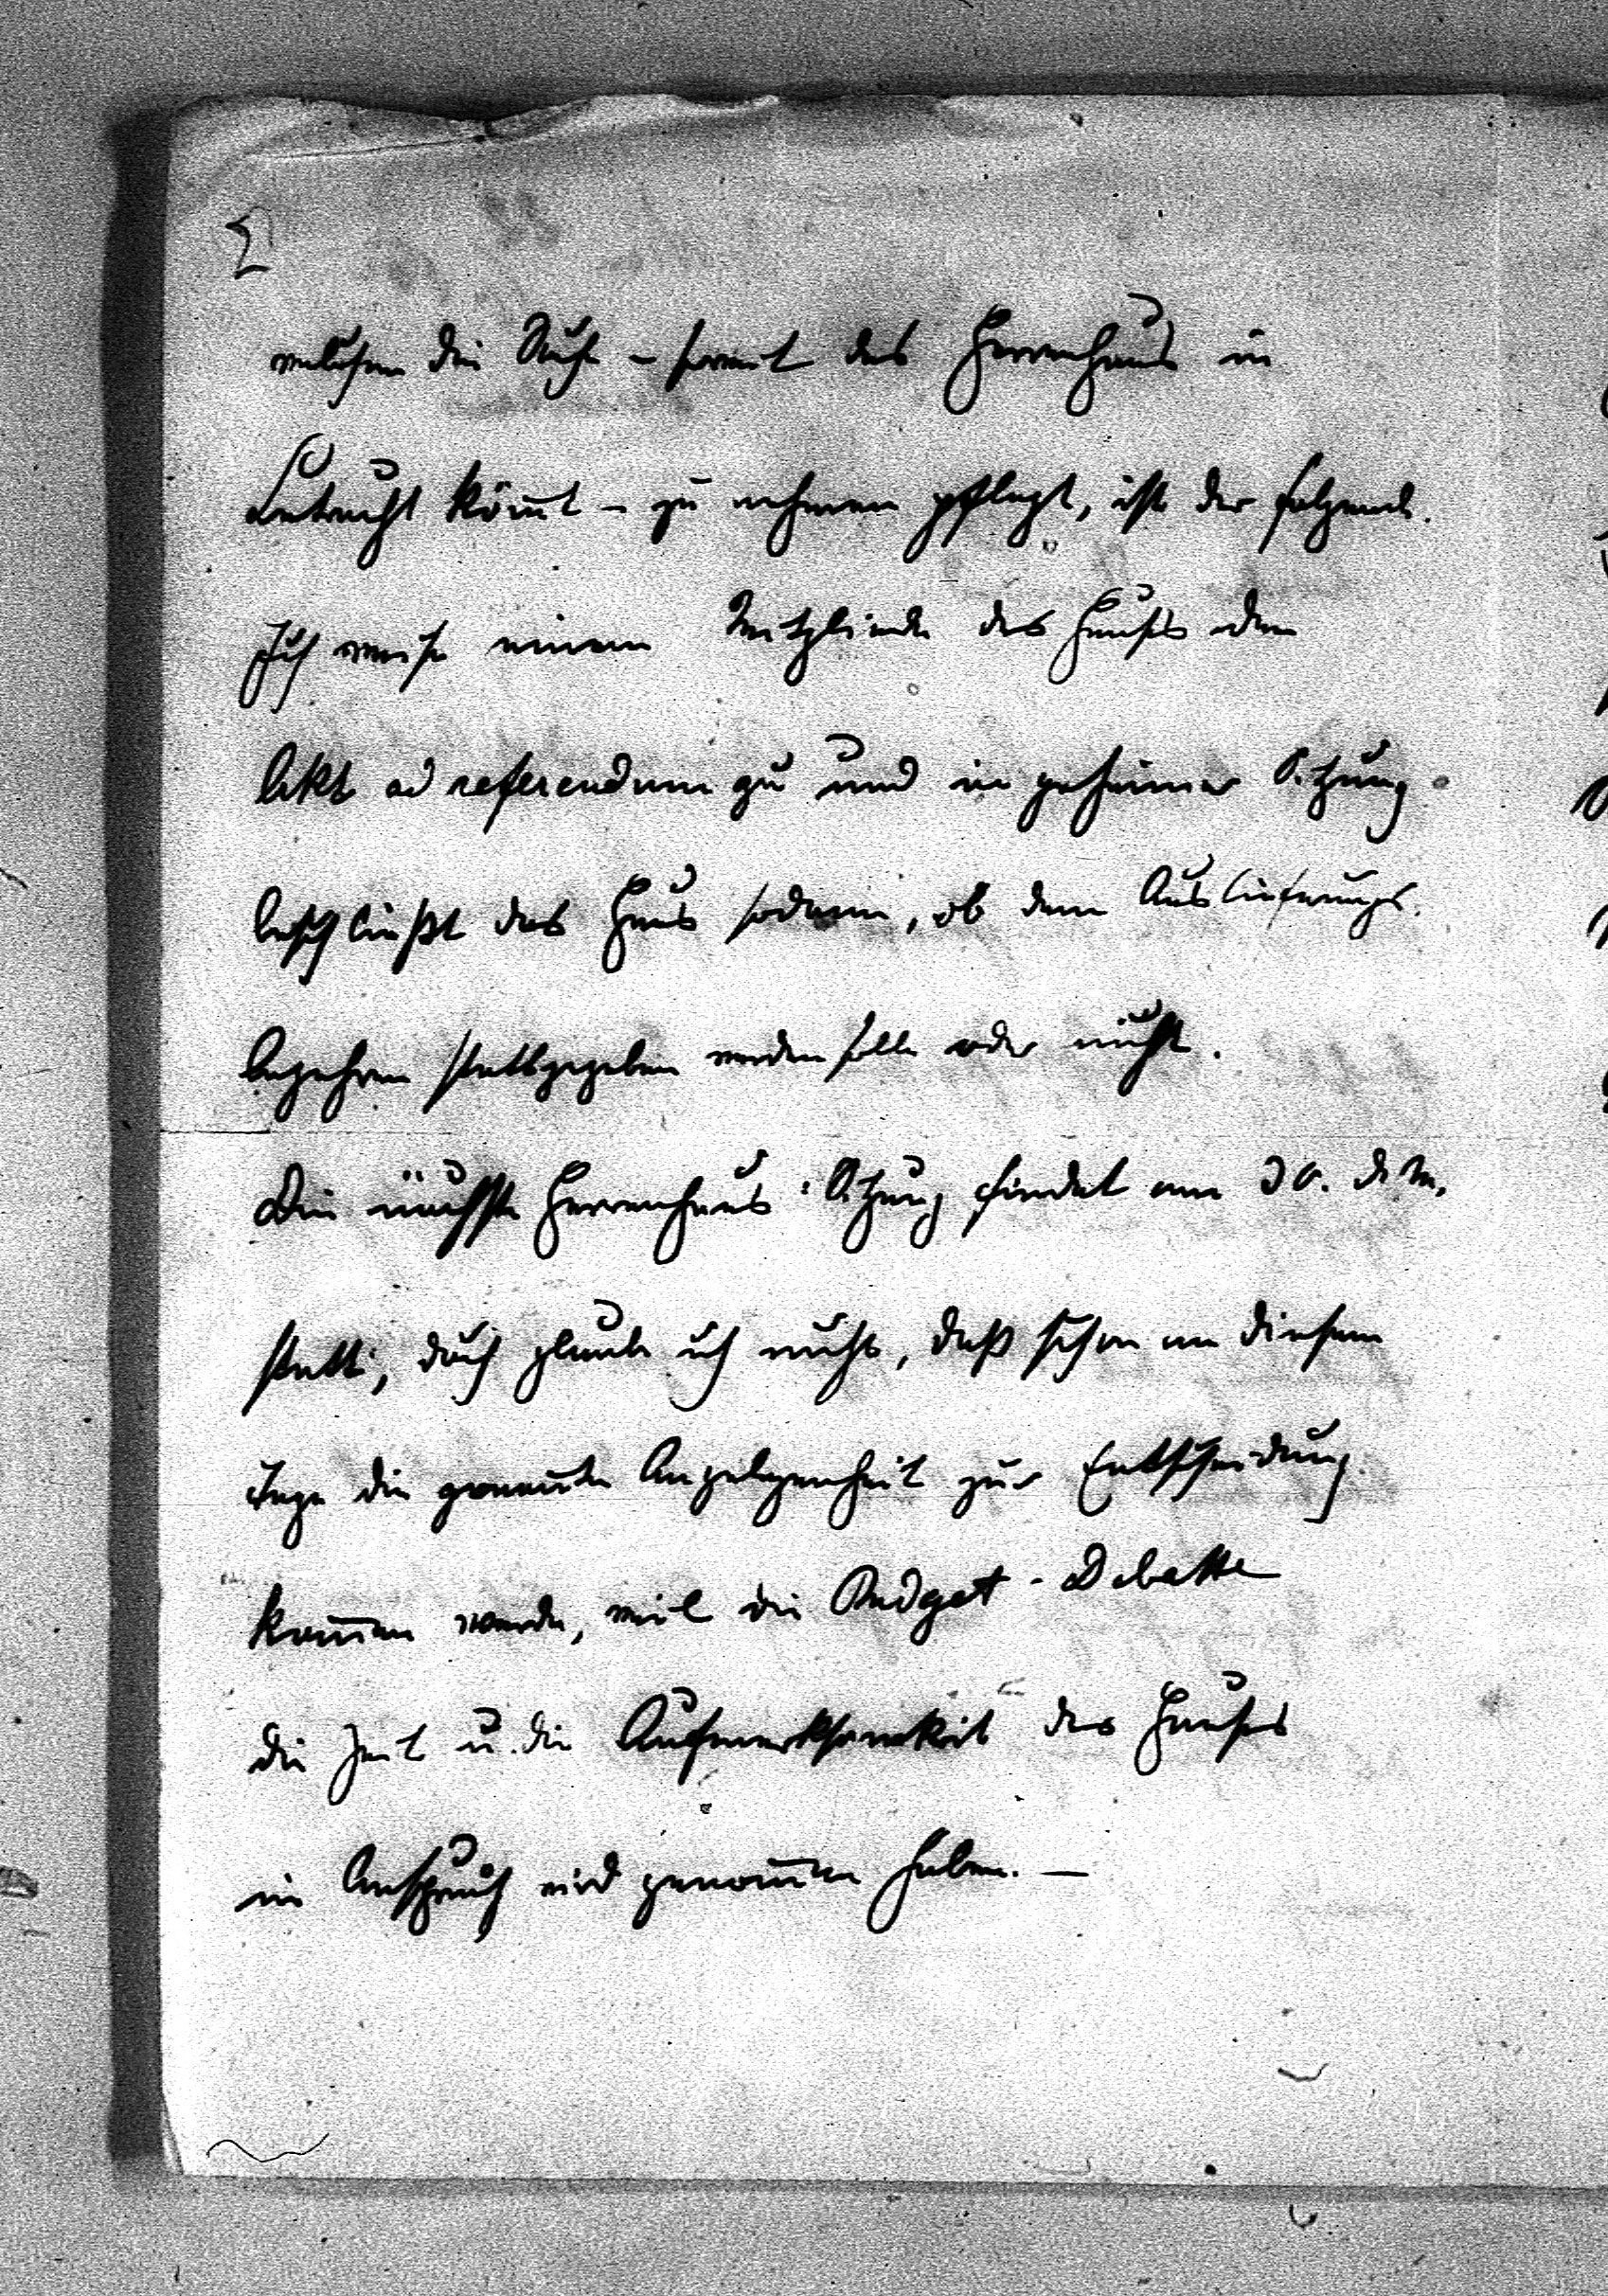 welchen die Sache – soweit das Herrenhaus in
Betracht kom̅t – zu nehmen pflegt, ist der folgende.
Ich weise einem Mitgliede des Hauses den
Akt ad referendum zu und in geheimer Sitzung
beschließt das Haus sodann, ob dem Auslieferungs-
begehren stattgegeben werden solle oder nicht.
Die nächste Herrenhaus-Sitzung findet am 30. d. M.
statt; doch glaube ich nicht, daß schon an diesem
Tage die genan̅te Angelegenheit zur Entscheidung
kom̅en werde, weil die Budget-Debatte
die Zeit u. die Aufmerksamkeit des Hauses
in Anspruch wird genom̅en haben. —